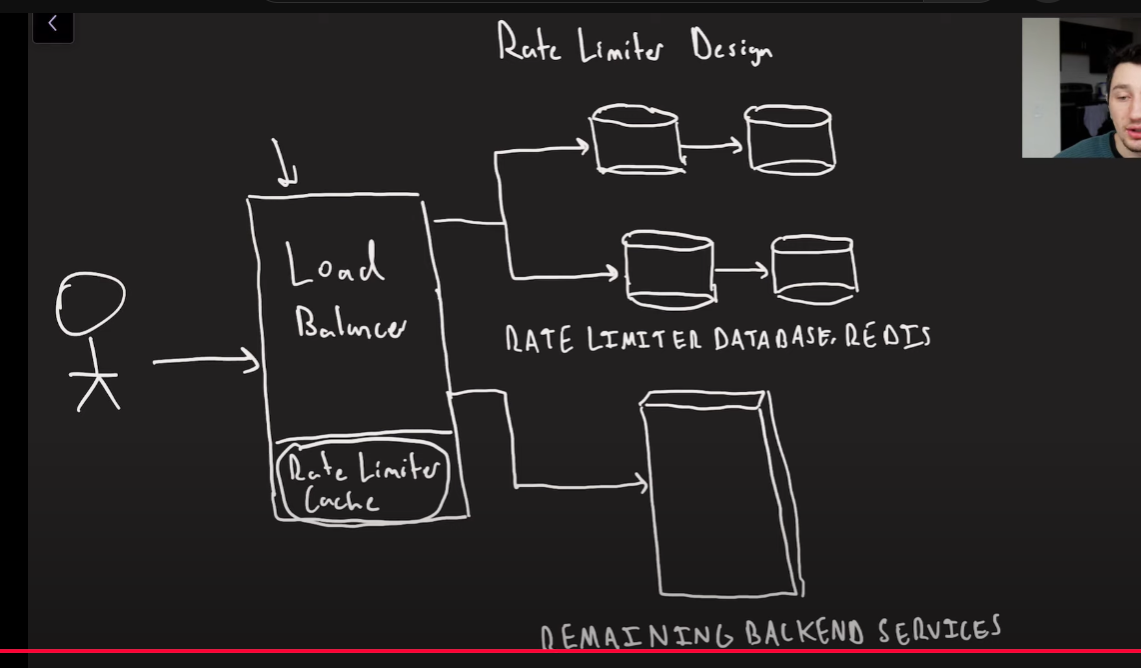 Rate Limiter Design
Load
Balancer
Rate Limiter
Cache
RATE LIMITER DATABASE. REDIS
REMAINING BACKEND SERVICES